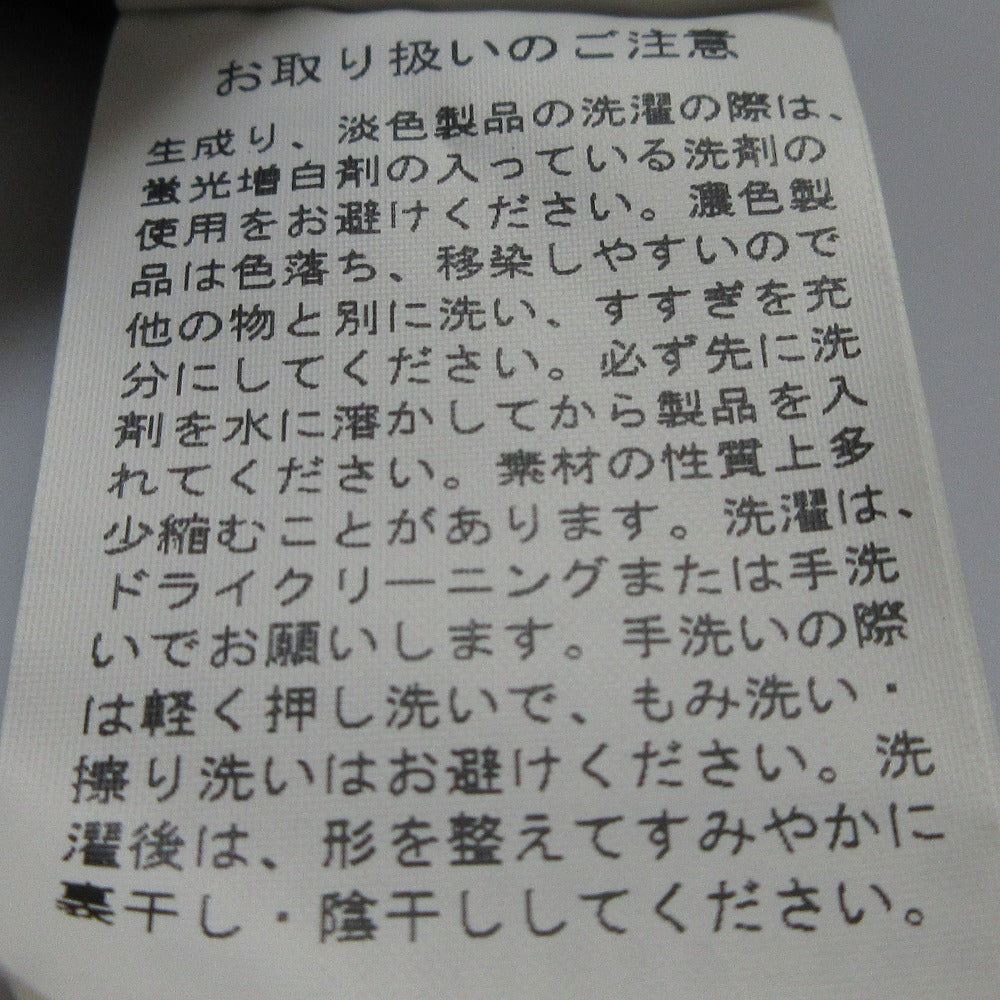 お取り扱いのご注意
生成り、淡色製品の洗濯の際は、
蛍光増白剤の入っている洗剤の
使用をお避けください。濃色製
品は色落ち、移染しやすいので
他の物と別に洗い、すすぎを充
分にしてください。必ず先に洗
剤を水に溶かしてから製品を入
れてください。素材の性質上多
少縮むことがあります。洗濯は、
ドライクリーニングまたは手洗
いでお願いします。手洗いの際
は軽く押し洗いで、もみ洗い・
擦り洗いはお避けください。洗
濯後は、形を整えてすみやかに
裏干し・陰干ししてください。